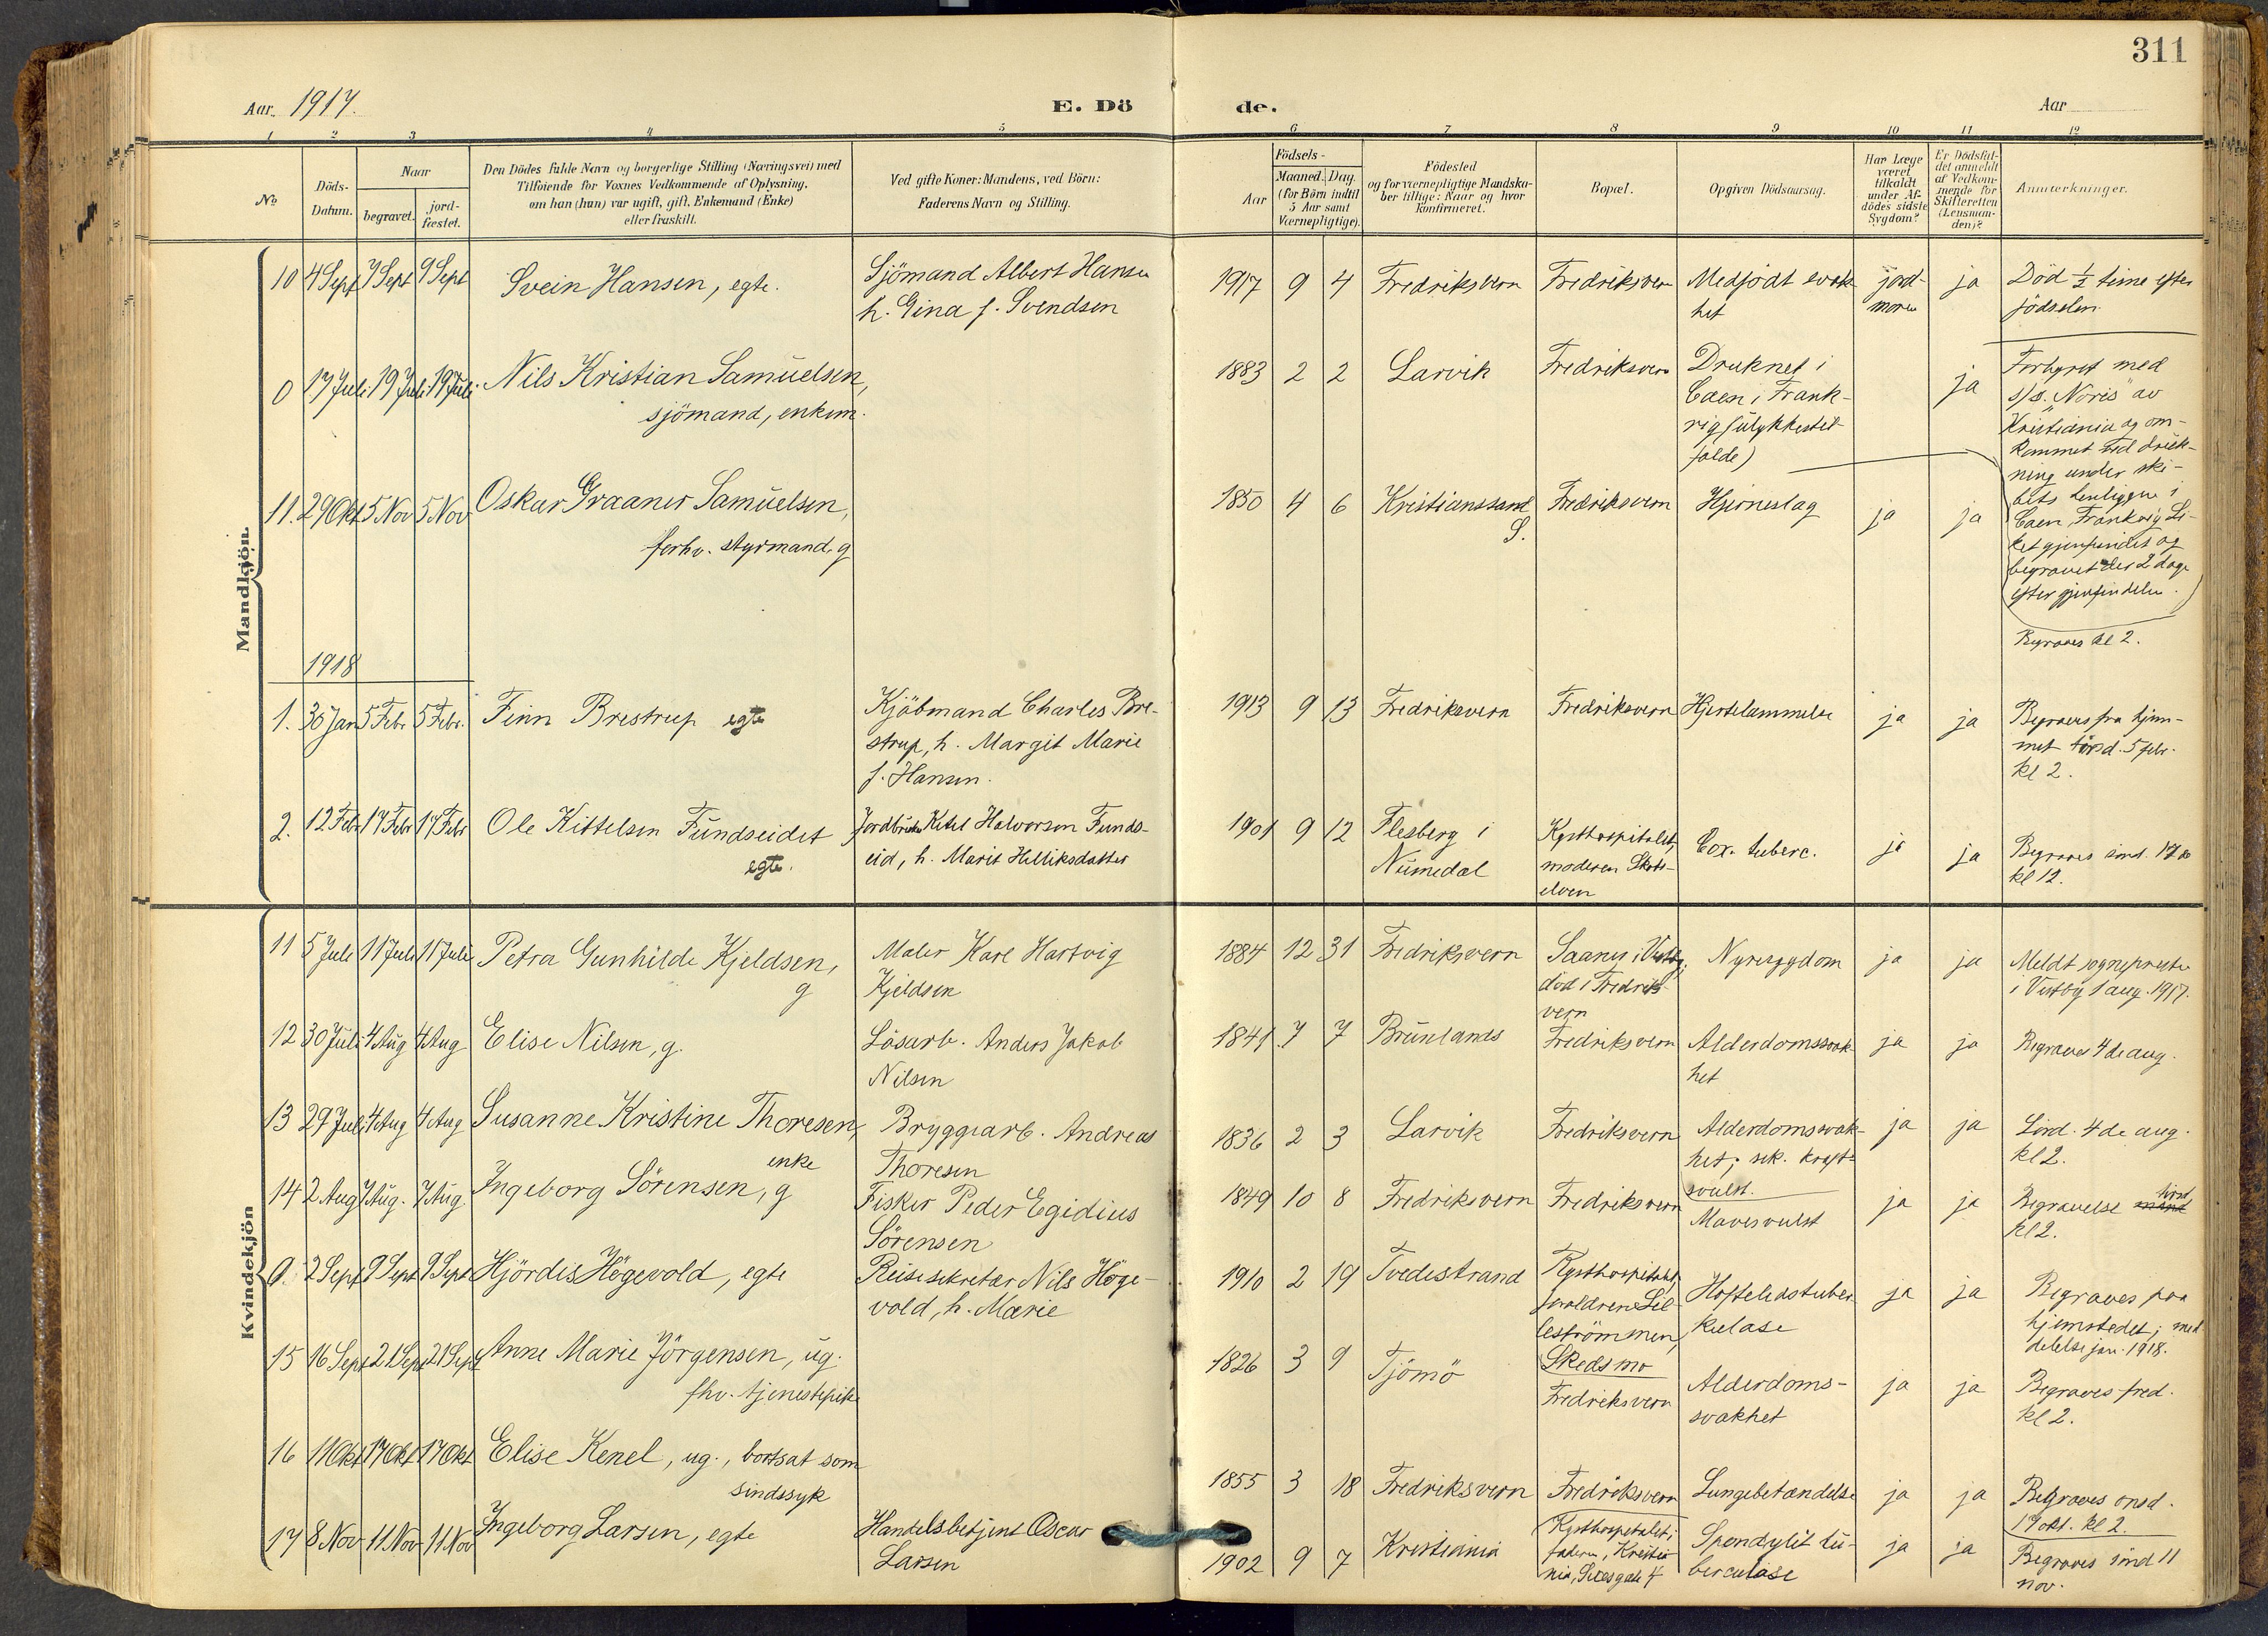 311
Aar 1917.
E. Dö
de.
Aar
1 2 3 4 5 6 7 8 9 10 11 12
No
Döds-Datum.
Naar
begravet.
jord-fæstet.
Den Dödes fulde Navn og borgerlige Stilling (Næringsvei) med
Tilföiende for Voxnes Vedkommende af Oplysning,
om han (hun) var ugift, gift, Enkemand (Enke)
eller fraskilt.
Ved gifte Koner: Mandens, ved Börn:
Faderens Navn og Stilling.
Födsels-
Aar
Maaned. Dag.
(for Börn indtil
5 Aar samt
Værnepligtige).
Födested
og for værnepligtige Mandska-
ber tillige: Naar og hvor
konfirmeret.
Bopæl.
Opgiven Dödsaarsag.
Har Læge
været
tilkaldt
under Af-
dödes sidste
Sygdom?
Er Dödsfal-
det anmeldt
af Vedkom-
mende for
Skifteretten
(Lensman-
den)?
Anmærkninger.
Mandkjön.
10 4 Sept 7 Sept 9 Sept Svein Hansen, egte.
Sjömand Albert Hansen
h. Gina f. Svendsen
1917 9 4 Fredriksvern Fredriksvern Medfödt svak-
het
jord-
moren
ja
Död ½ time efter
födselen.
0 17 Juli 19 Juli 19 Juli Nils Kristian Samuelsen,
sjömand, enkem.
1883 2 2 Larvik Fredriksvern Druknet i
Caen i Frank-
rig (ulykkestil-
fælde)
ja
Forhyret med
s/s. "Noris" av
Kristiania og om-
kommet ved druk-
ning under ski-
bets henliggen i
Caen, Frankrig. Li-
ket gjenfundet og
begravet der 2 dage
efter gjenfindelsen.
11. 29 Okt 5 Nov 5 Nov Oskar Graaner Samuelsen,
forhv. styrmand, g
1850 4 6 Kristianssand
S.
Fredriksvern Hjerneslag ja ja
Begraves kl 2.
1918
1. 30 Jan 5 Febr 5 Febr. Finn Brestrup egte
Kjöbmand Charles Bre-
strup, h. Margit Marie
f. Hansen.
1913 9 13 Fredriksvern Fredriksvern Hjertelammelse ja ja
Begraves fra hjem-
met tirsd. 5 febr.
kl 2.
2. 12 Febr 17 Febr 17 Febr Ole Kittelsen Fundseidet
egte.
Jordbruker Ketil Halvorsen Funds-
eid, h. Marit Helliksdatter
1901 9 12 Flesberg i
Numedal
Kysthospitalet,
moderen Skots-
elven
Cox. tuberc. ja ja
Begraves sönd. 17de
kl 12.
Kvindekjön
11 5 Juli 11 Juli 11 Juli Petra Gunhilde Kjeldsen,
g
Maler Karl Hartvig
Kjeldsen
1884 12 31 Fredriksvern
Saaner i Vestby,
död i Fredriks-
vern
Nyresygdom ja ja
Meldt sognepresten
i Vestby 1 aug. 1917.
12 30 Juli 4 Aug 4 Aug Elise Nilsen, g.
Lösarb. Anders Jakob
Nilsen
1841 7 7 Brunlands Fredriksvern Alderdomssvak-
het
ja ja Begraves 4 de aug.
13 29 Juli 4 Aug 4 Aug Susanne Kristine Thoresen,
enke
Bryggearb. Andreas
Thoresen
1836 2 3 Larvik Fredriksvern Alderdomssvak-
het; sek. kræft-
svulst.
ja ja Lörd. 4 de aug.
kl 2.
14 2 Aug 7 Aug. 7 Aug Ingeborg Sörensen, g
Fisker Peder Egidius
Sörensen
1849 10 8 Fredriksvern Fredriksvern
Mavesvulst ja ja
Begravelse tirsd.
kl 2.
0. 2 Sept 9 Sept 9 Sept Hjördis Högevold, egte
Reisesekretær Nils Höge-
vold, h. Marie
1910 2 19 Tvedestrand
Kysthospitalet,
forældrene Lil-
leströmmen,
Skedsmo
Hofteledstuber-
kulose
ja ja
Begraves paa
hjemstedet; med-
delelse jan. 1918.
15 16 Sept 21 Sept 21 Sept Anne Marie Jörgensen, ug.
fhv. tjenestepike
1826 3 9 Tjömö
Fredriksvern
Alderdoms-
svakhet
ja ja
Begraves fred.
kl 2.
16 11 Okt 17 Okt 17 Okt Elise Kenel, ug., bortsat som
sindssyk
1855 3 18 Fredriksvern Fredriksvern Lungebetændelse ja ja
Begraves onsd.
17 okt. kl 2.
17 8 Nov 11 Nov 11 Nov Ingeborg Larsen, egte
Handelsbetjent Oscar
Larsen
1902 9 7 Kristiania
Kysthospitalet;
faderen, Kristia-
nia,
Spondylit tu-
berculose
ja ja
Begraves sönd 11
nov.